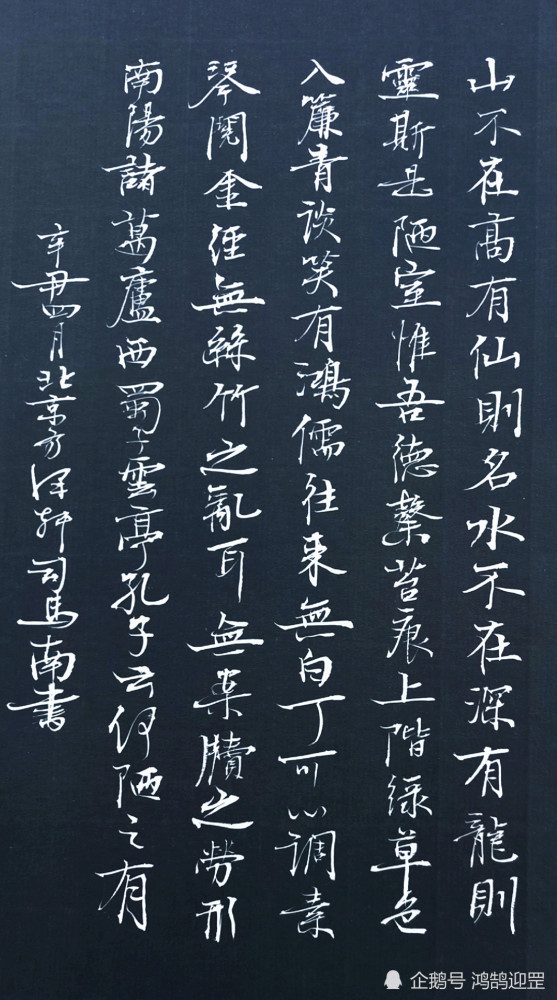 山不在高有仙則名水不在深有龍則
靈斯是陋室惟吾德馨苔痕上階綠草色
入簾青談笑有鴻儒往來無白丁可以調素
琴閱金經無絲竹之亂耳無案牘之勞形
南陽諸葛廬西蜀子雲亭孔子云何陋之有
辛丑四月北京方司馬南書
企鹅号 鸿鹄迎罡